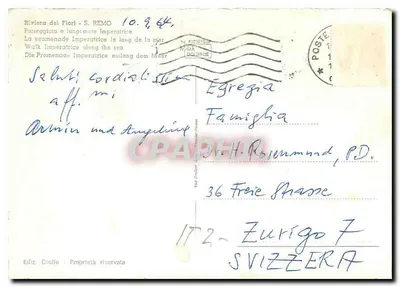 Riviera dei Fiori - S. REMO
Passeggiata e lungomare Imperatrice
La promenade Imperatrice le long de la mer
Walk Imperatrice along the sea
Die Promenade Imperatrice entlang dem Meer
10.9.64.
POSTE
Saluti cordialissimi
aff. mi
Armin und Angelina
Egregia
Famiglia
N. H. Rosenmund, P.D.
36 Freie Strasse
IT2-
Zurigo 7
SVIZZERA
CPARAMA
Ediz.
- Proprietà riservata